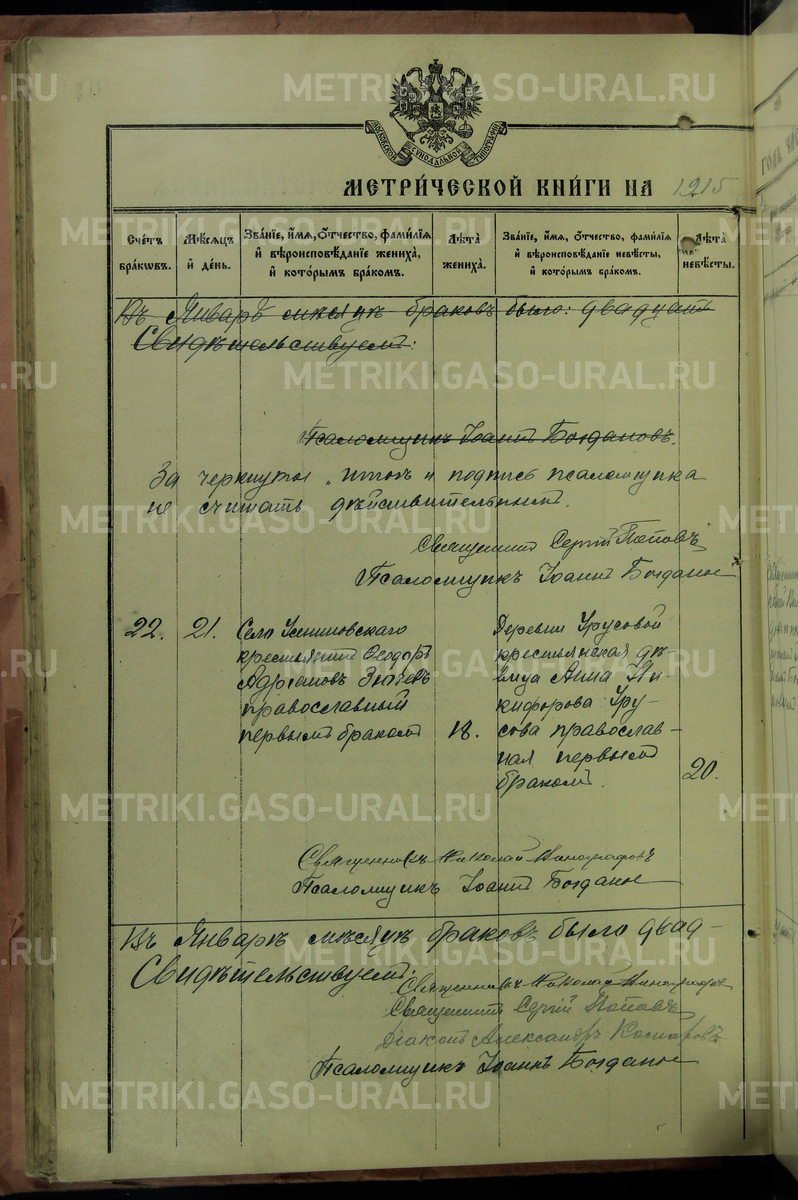 МОСКОВСКОЙ СѴНОДАЛЬНОЙ ТИПОГРАФІИ
МЕТРИ́ЧЕСКОЙ КНИ́ГИ НА 1915
Сче́тъ бра́кѡвъ.
Мѣ́сѧцъ и҆ де́нь.
Зва́нїе, и҆́мѧ, ѻ҆́тчество, фами́лїѧ и҆ вѣроисповѣ́данїе жениха̀, и҆ кото́рымъ бра́комъ.
Лѣ́та жениха̀.
Зва́нїе, и҆́мѧ, ѻ҆́тчество, фами́лїѧ и҆ вѣроисповѣ́данїе невѣ́сты, и҆ кото́рымъ бра́комъ.
Лѣ́та невѣ́сты.
Въ Январѣ мѣсяцѣ браковъ было: двадцать
Свидѣтельствуемъ:
Псаломщикъ Іоаннъ Богдановъ.
За черкнутое „итогъ и подпись псаломщика
не считать дѣйствительнымъ.
Священникъ Сергій Поповъ
Псаломщикъ Іоаннъ Богданов
22.
21.
Село
крестьянинъ Ѳеодоръ
Адріановъ
православный
первымъ бракомъ
18.
Деревни Урусовой
крестьянская дѣ-
вица Анна Ни-
кифорова Уру-
сова православ-
ная первымъ
бракомъ.
20.
Священникъ Николай
Псаломщикъ Іоаннъ Богданов
Въ Январѣ мѣсяцѣ браковъ было двад-
Свидѣтельствуемъ:
Священникъ Николай
Священникъ Сергій Поповъ
Діаконъ Александръ Комаровъ
Псаломщикъ Іоаннъ Богданов
METRIKI.GASO-URAL.RU